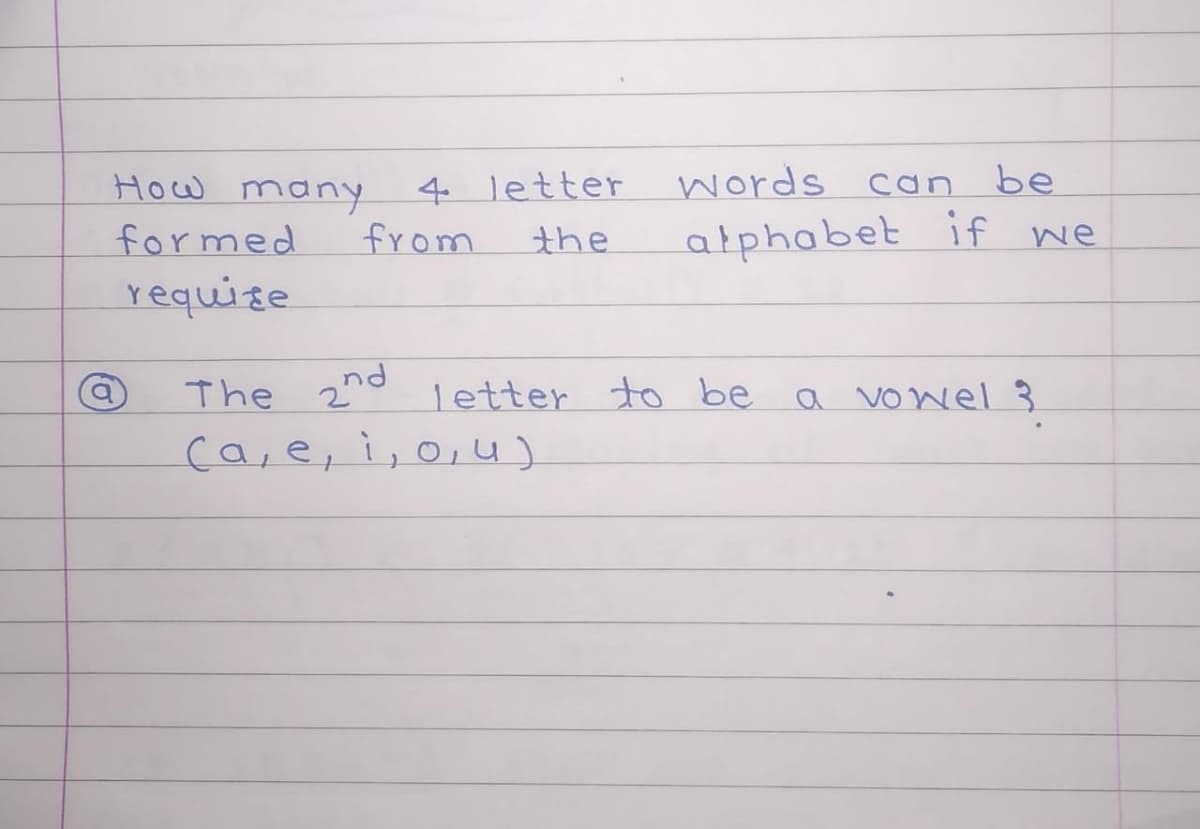 How many 4 letter words can be
formed from the alphabet if we
require
ⓐ The 2nd letter to be a vowel ?
(a, e, i, o, u)